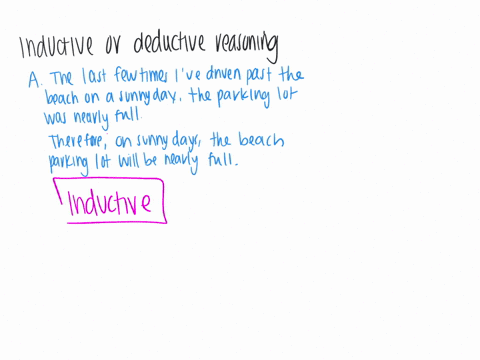 Inductive or deductive reasoning
A. The last few times I've driven past the
beach on a sunny day, the parking lot
was nearly full.
Therefore, on sunny days, the beach
parking lot will be nearly full.
Inductive